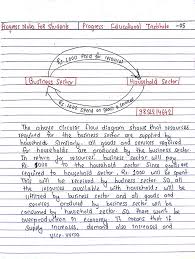 Progress Notes For Students Progress Educational Institute -05
Rs. 1000 Paid for resources
Business Sector
Household Sector
Rs. 1000 Spend on Goods & Services
The above circular flow diagram shows that resources
required for the business sector are supplied by
households. Similarly all goods and services required
for households are produced by the business sector
In return for resources, business sector will pay
Rs. 1000 to the household sector. Since
required to household sector Rs. 1000 will be spent
This will be received by business sector. So all
the resources available with households will be
utilised by business sector and all goods and
services produced by business sector will be
consumed by household sector. So there won't be
in the economy. It means that if
supply increases, demand also increases and
vice versa